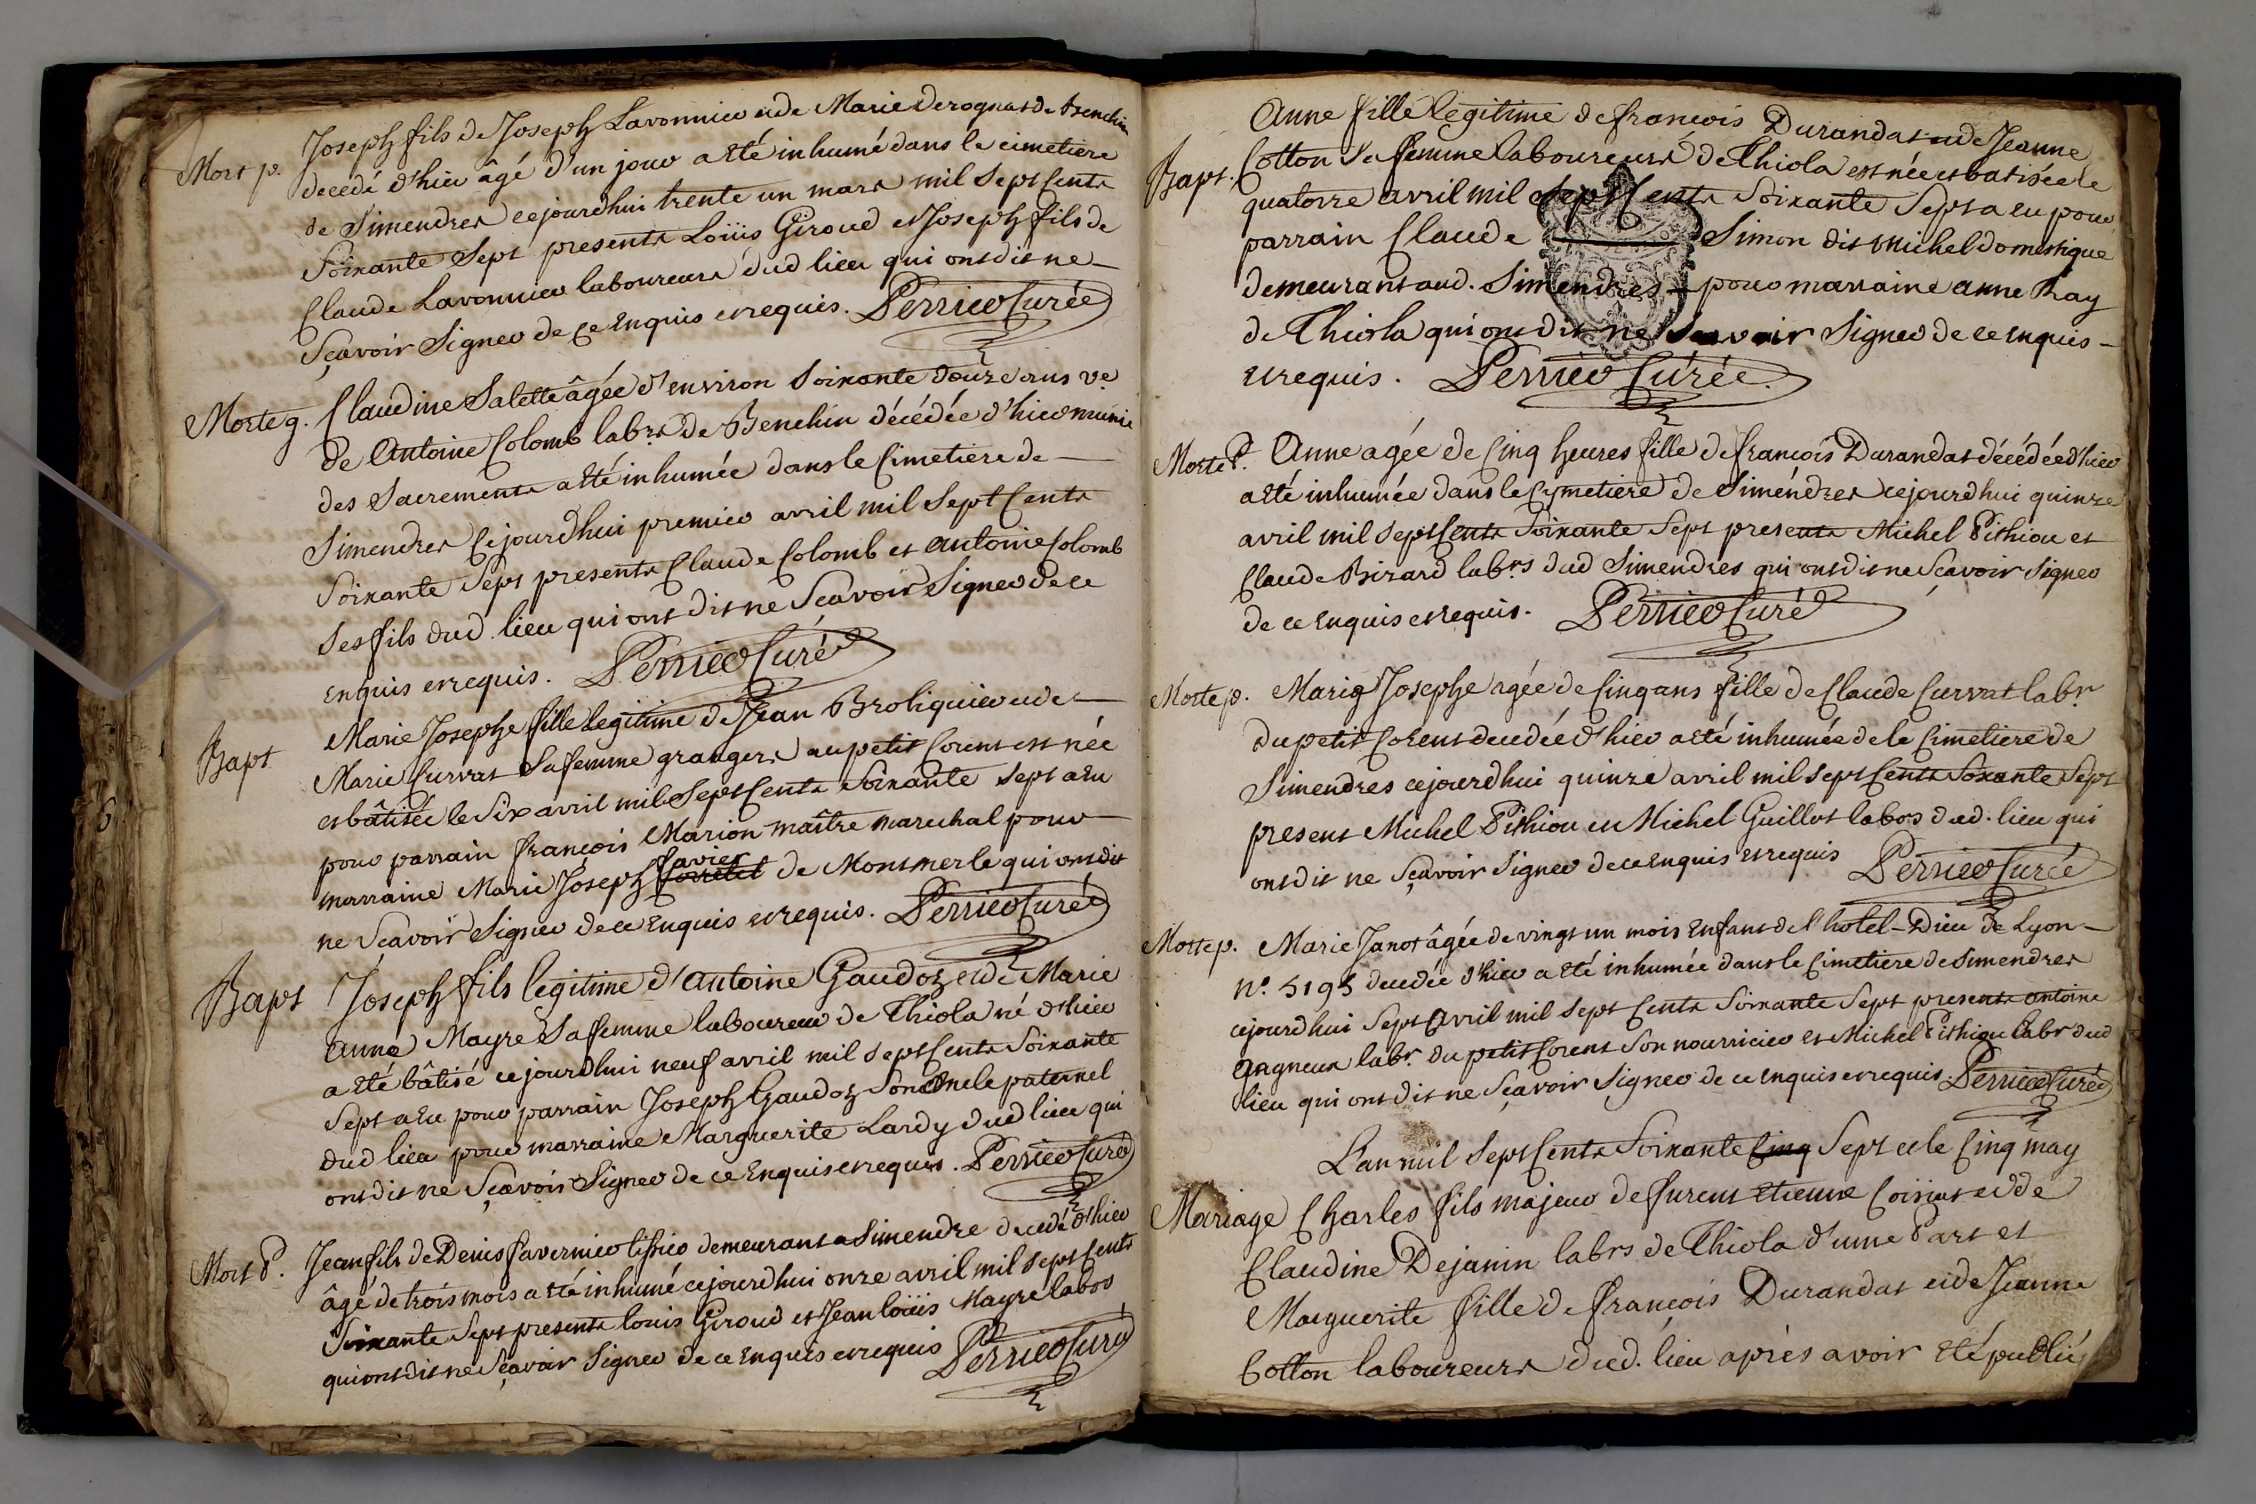 Mort p. Joseph fils de Joseph Lavonnier et de Marie Derognat de Benchin
decedé d'hier âgé d'un jour a été inhumé dans le cimetiere
de Simendres cejourdhui trente un mars mil Sept Cents
Soixante Sept presents Loüis Giroud et Joseph fils de
Claude Lavonnier laboureurs dud lieu qui ont dit ne
Sçavoir Signer de ce Enquis et requis. Perrier Curée
Morte g. Claudine Salette âgée d'environ Soixante douze ans ve
de Antoine Colomb labrs de Benchin décédée d'hier munie
des Sacrements a été inhumée dans le Cimetiere de
Simendres Cejourdhui premier avril mil Sept Cents
Soixante Sept presents Claude Colomb et antoine Colomb
Ses fils dud. lieu qui ont dit ne Sçavoir Signer de ce
enquis et requis. Perrier Curé
Bapt Marie Josephe fille legitime de Jean Broliquier et de
Marie Curvat Sa femme grangers au petit Corent est née
et bâtisée le Six avril mil Sept Cents Soixante Sept a Eu
pour parrain françois Marion maître marechal pour
marraine Marie Joseph favier de Montmerle qui ont dit
ne Sçavoir Signer de ce Enquis et requis. Perrier Curée
Bapt Joseph fils legitime d'antoine Gaudoz et de Marie
anne Mayre Sa femme laboureur de Thiola né d'hier
a Eté bâtisé cejourdhui neuf avril mil Sept Cents Soixante
Sept a Eu pour parrain Joseph Gaudoz Son Oncle paternel
dud lieu pour marraine Marguerite Lardy dud lieu qui
ont dit ne Sçavoir Signer de ce Enquis et requis. Perrier Curé
Mort P. Jean fils de Denis favernier tissier demeurant a Simendre decedé d'hier
âgé de trois mois a été inhumé cejourdhui onze avril mil Sept Cents
Soixante Sept presents louis Giroud et Jean loüis Mayre labos
qui ont dit ne Sçavoir Signer de ce Enquis et requis Perrier Curé
Anne fille legitime de françois Durandat et de Jeanne
Bapt. Cotton Sa femme laboureurs de Thiola est née et batisée le
quatorze avril mil Sept Cents Soixante Sept a Eu pour
parrain Claude Simon dit Michel domestique
demeurant aud. Simendres pour marraine anne Ray
de Thiola qui ont dit ne Sçavoir Signer de ce Enquis
et requis. Perrier Curée.
Morte P. Anne agée de Cinq heures fille de françois Durandat décédée d'hier
a été inhumée dans le Cymetiere de Siméndres cejourdhui quinze
avril mil Sept Cents Soixante Sept presents Michel Pithiou et
Claude Bizard labrs dud Simendres qui ont dit ne Sçavoir Signer
de ce Enquis et requis. Perrier Curé
Morte p. Marie Josephe agée de Cinq ans fille de Claude Curvat labr
du petit Corent decedée d'hier a été inhumée de le Cimetiere de
Simendres cejourdhui quinze avril mil Sept Cents Soxante Sept
present Michel Pithiou et Michel Guillot labos dud. lieu qui
ont dit ne Sçavoir Signer de ce Enquis et requis Perrier Curée
Morte p. Marie Janot âgée de vingt un mois Enfant de l'hotel-Dieu de Lyon
No. 5195 decedée d'hier a été inhumée dans le Cimetiere de Simendres
cejourdhui Sept Avril mil Sept Cents Soixante Sept presents antoine
Gagneux labr. du petit Corent Son nourricier et Michel Pithiou labr dud
lieu qui ont dit ne Sçavoir Signer de ce enquis et requis. Perrier Curée
L'an mil Sept Cents Soixante Cinq Sept et le Cinq may
Mariage Charles fils majeur de furent Etienne Coisiat et de
Claudine Dejanin labrs de Thiola d'une Part et
Marguerite fille de françois Durandat et de Jeanne
Cotton laboureurs dud. lieu après avoir Eté publié